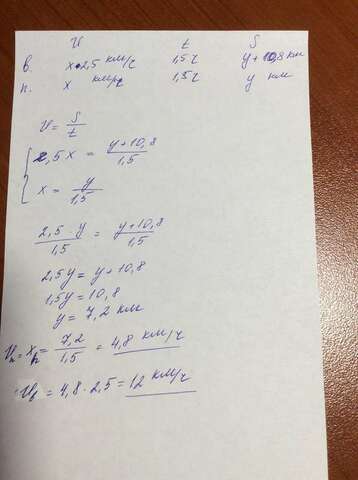 V t S
в. x·2,5 км/ч 1,5ч y+10,8 км
п. x км/ч 1,5ч y км
V = S/t
2,5x = y+10,8/1,5
x = y/1,5
2,5·y/1,5 = y+10,8/1,5
2,5y = y+10,8
1,5y = 10,8
y = 7,2 км
Vп = xп = 7,2/1,5 = 4,8 км/ч
Vв = 4,8·2,5 = 12 км/ч